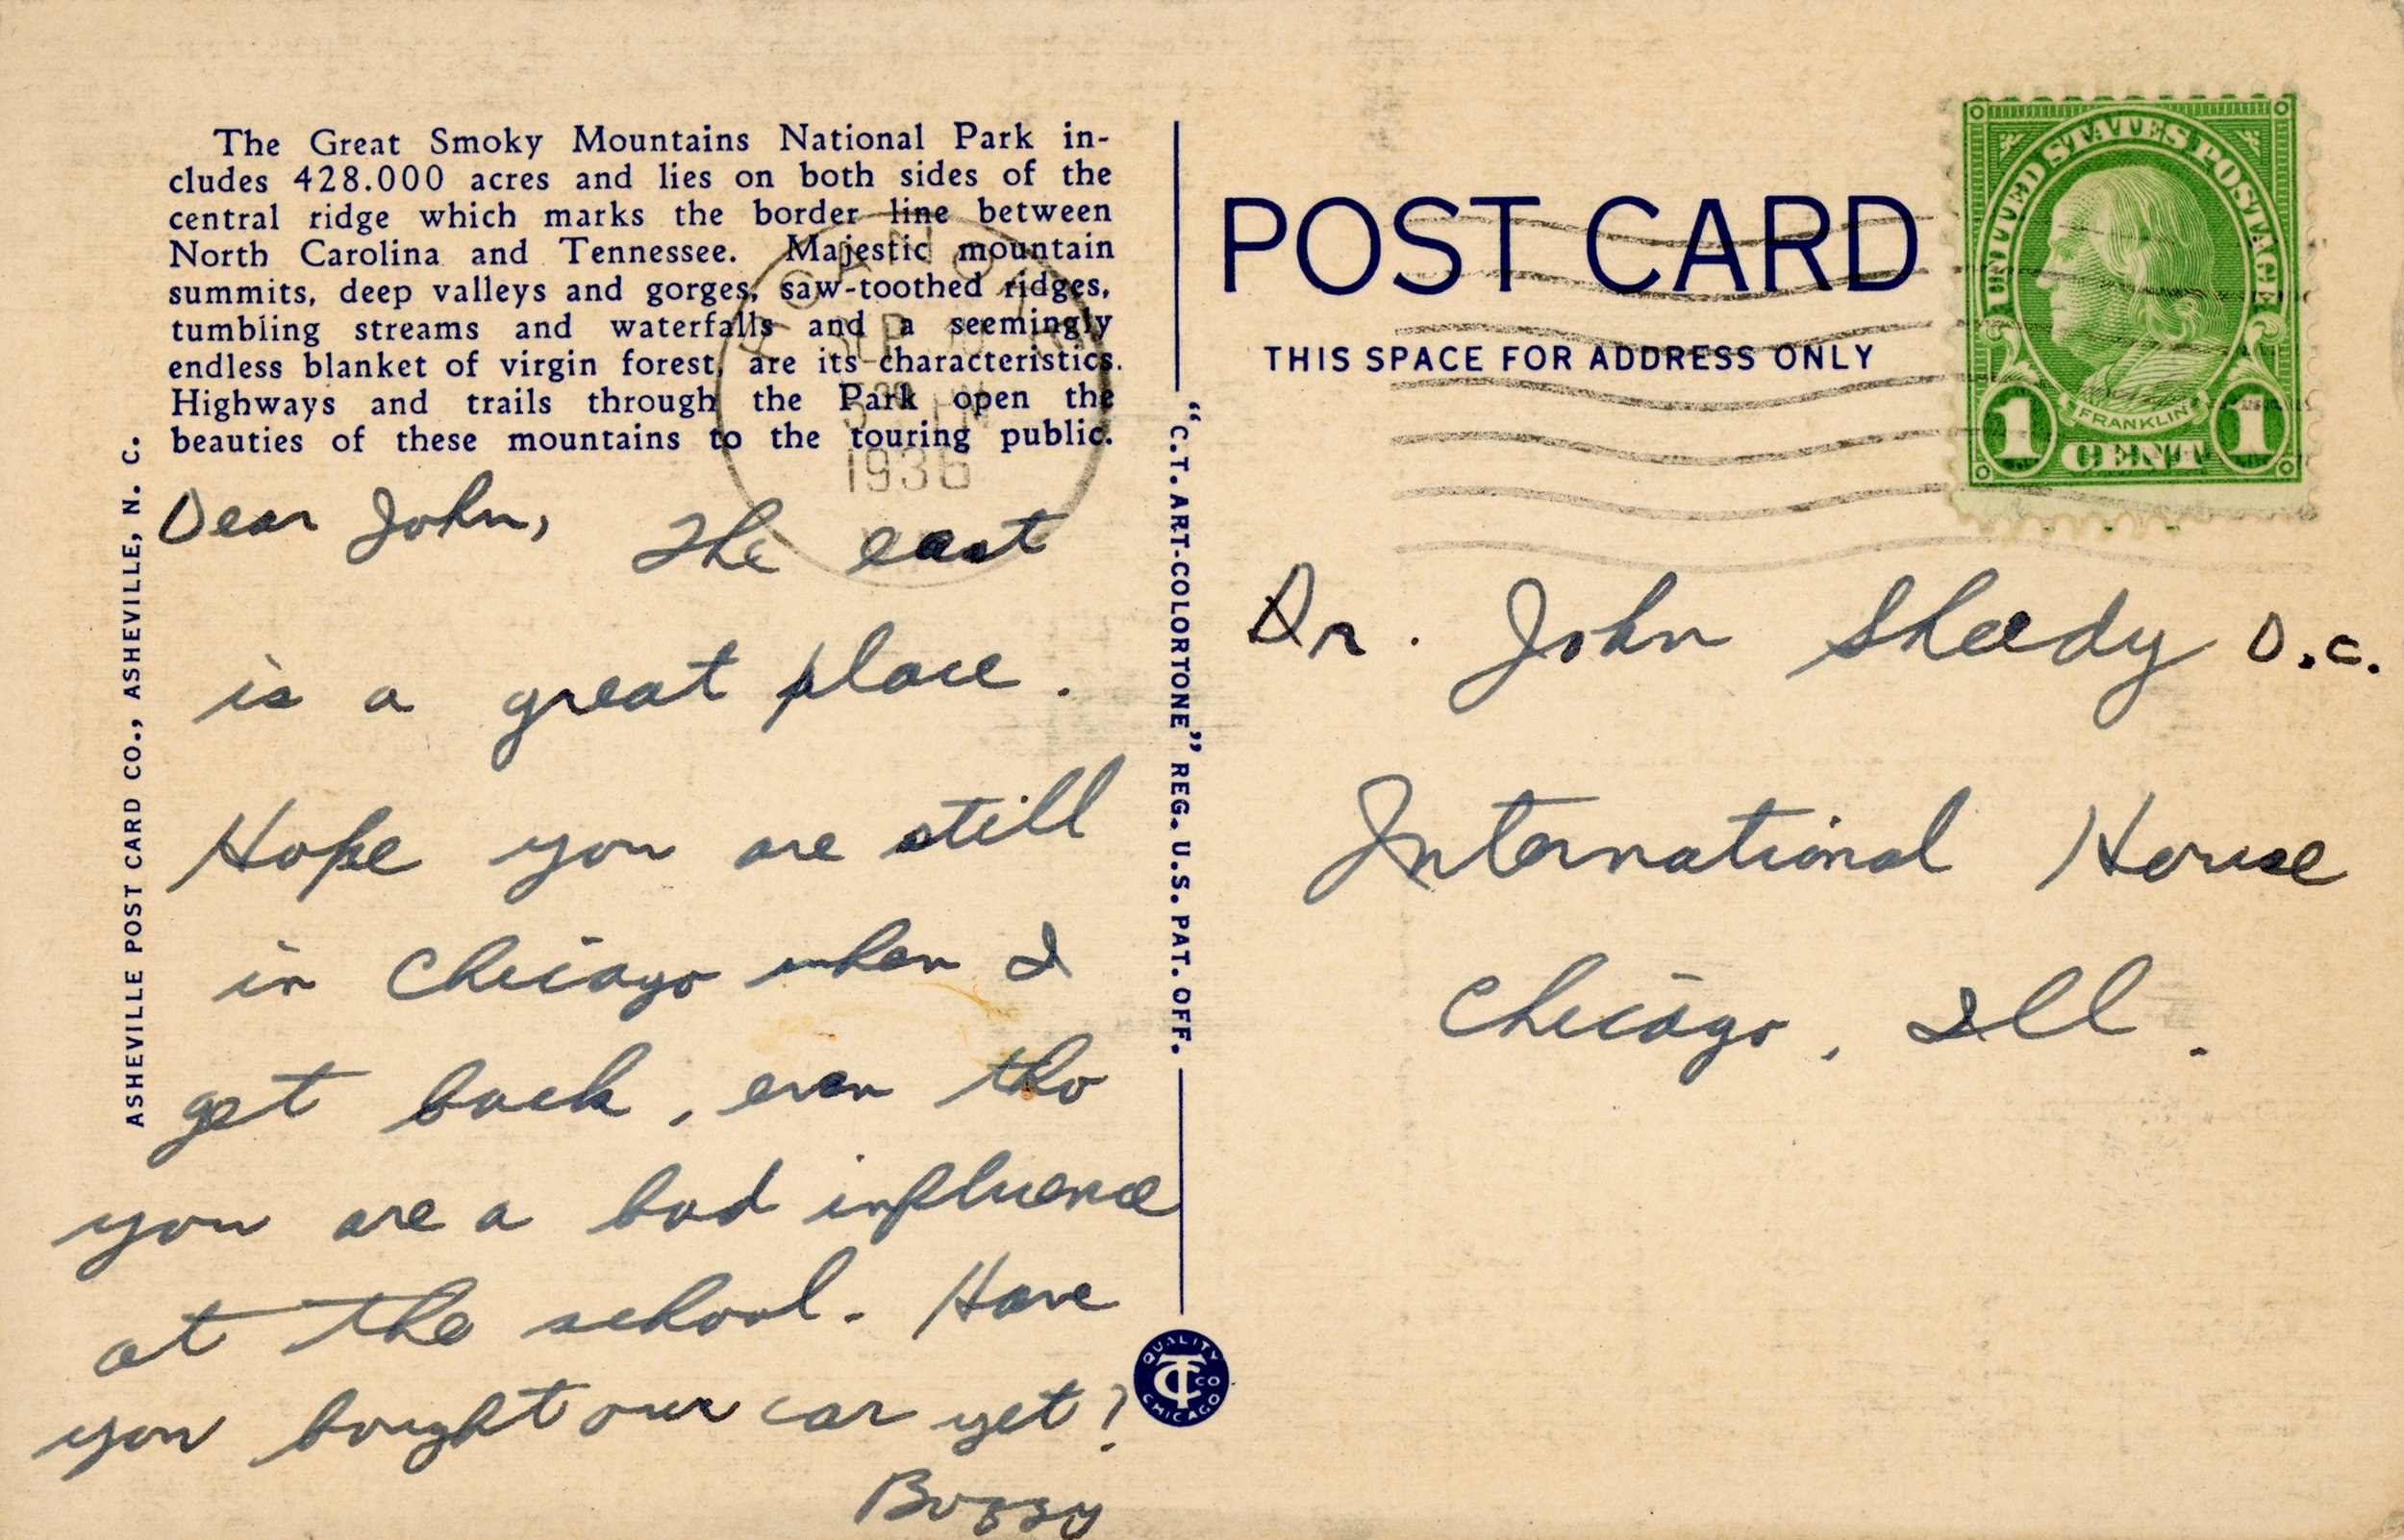 The Great Smoky Mountains National Park in-
cludes 428.000 acres and lies on both sides of the
central ridge which marks the border line between
North Carolina and Tennessee. Majestic mountain
summits, deep valleys and gorges, saw-toothed ridges,
tumbling streams and waterfalls and a seemingly
endless blanket of virgin forest, are its characteristics.
Highways and trails through the Park open the
beauties of these mountains to the touring public.
SEP
1936
Dear John, The east
is a great place.
Hope you are still
in Chicago when I
get back, even tho
you are a bad influence
at the school. Have
you bought our car yet?
ASHEVILLE POST CARD CO., ASHEVILLE, N. C.
"C.T. ART-COLORTONE" REG. U.S. PAT. OFF.
QUALITY
CT CO
CHICAGO
POST CARD
THIS SPACE FOR ADDRESS ONLY
UNITED STATES POSTAGE
FRANKLIN
1 CENT 1
Dr. John Sheedy D.C.
International House
Chicago, Ill.